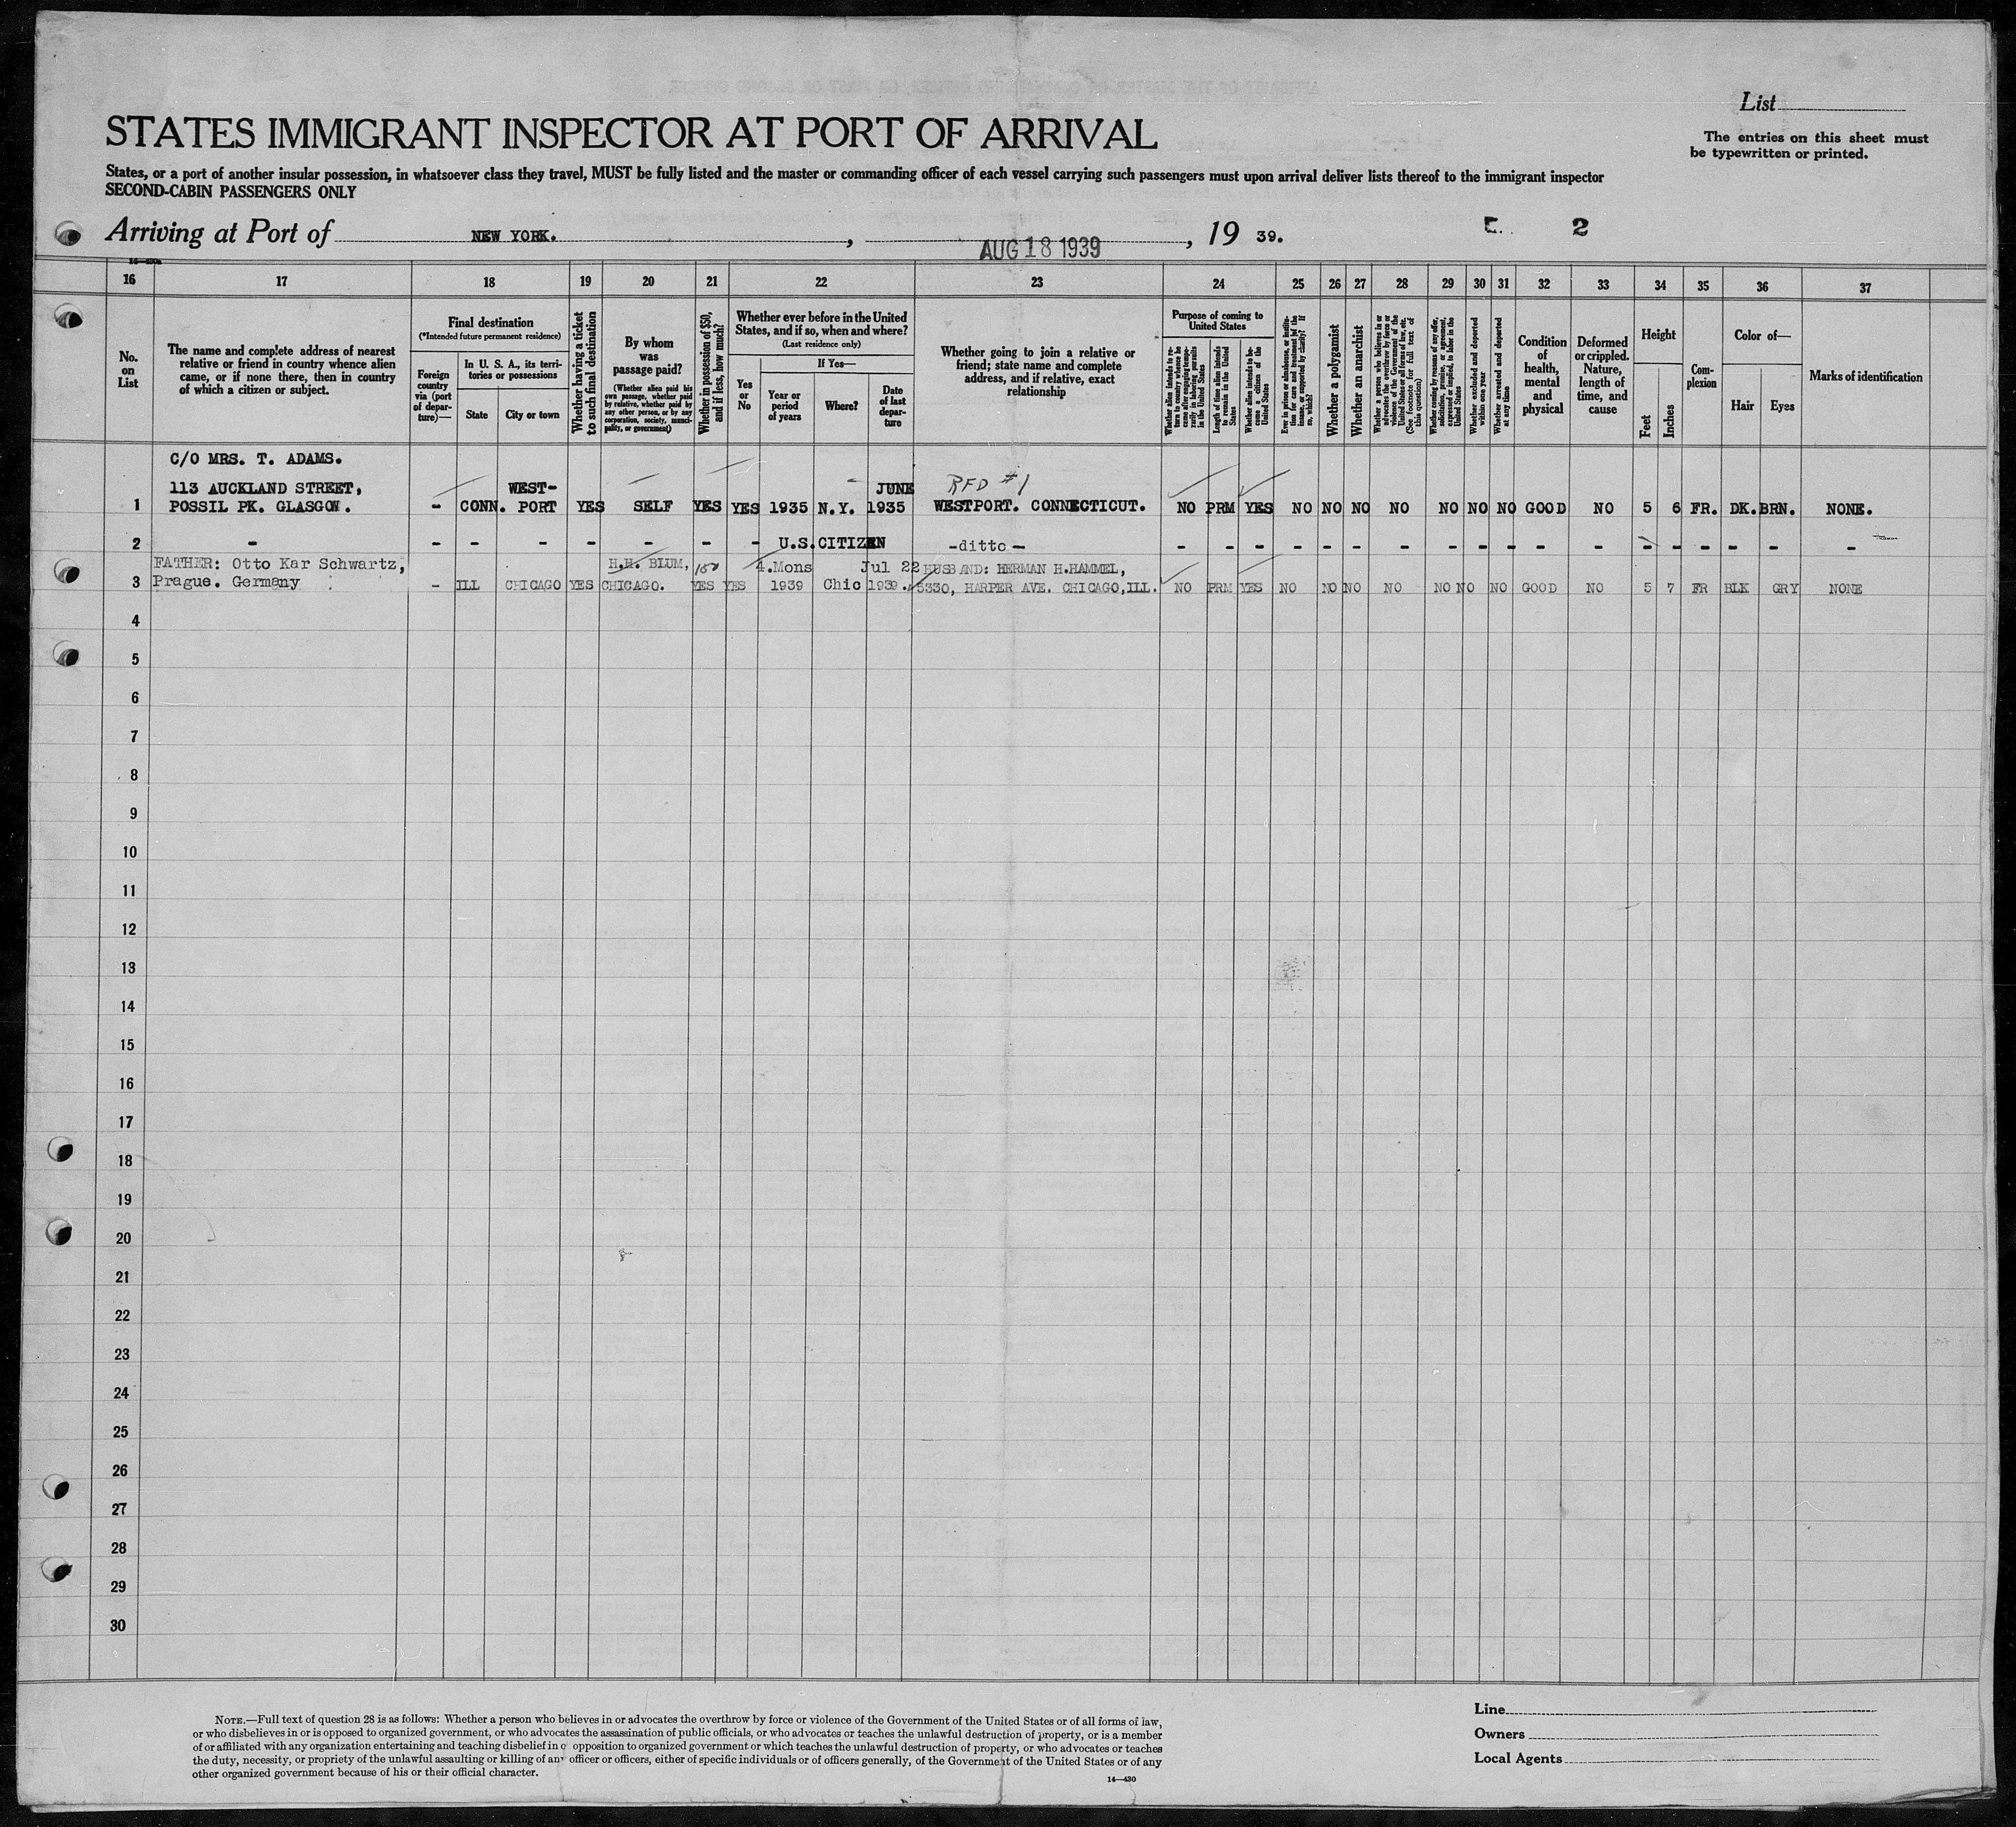 List
STATES IMMIGRANT INSPECTOR AT PORT OF ARRIVAL
The entries on this sheet must
be typewritten or printed.
States, or a port of another insular possession, in whatsoever class they travel, MUST be fully listed and the master or commanding officer of each vessel carrying such passengers must upon arrival deliver lists thereof to the immigrant inspector
SECOND-CABIN PASSENGERS ONLY
Arriving at Port of NEW YORK. , AUG 18 1939 , 19 39. 2
16 17 18 19 20 21 22 23 24 25 26 27 28 29 30 31 32 33 34 35 36 37
No. on List
The name and complete address of nearest relative or friend in country whence alien came, or if none there, then in country of which a citizen or subject.
Final destination
(*Intended future permanent residence)
Foreign country via (port of departure)—
In U. S. A., its territories or possessions
State
City or town
Whether having a ticket to such final destination
By whom was passage paid?
(Whether alien paid his own passage, whether paid by relative, whether paid by any other person, or by any corporation, society, municipality, or government)
Whether in possession of $50, and if less, how much?
Whether ever before in the United States, and if so, when and where?
(Last residence only)
Yes or No
If Yes—
Year or period of years
Where?
Date of last departure
Whether going to join a relative or friend; state name and complete address, and if relative, exact relationship
Purpose of coming to United States
Whether alien intends to return to country whence he came after engaging temporarily in laboring pursuits in the United States
Length of time alien intends to remain in the United States
Whether alien intends to become a citizen of the United States
Ever in prison or almshouse, or institution for care and treatment of the insane, or supported by charity? If so, which?
Whether a polygamist
Whether an anarchist
Whether a person who believes in or advocates the overthrow by force or violence of the Government of the United States or all forms of law, etc. (See footnote for full text of this question)
Whether coming by reasons of any offer, solicitation, promise, or agreement, expressed or implied, to labor in the United States
Whether excluded and deported within one year
Whether arrested and deported at any time
Condition of health, mental and physical
Deformed or crippled. Nature, length of time, and cause
Height
Feet
Inches
Complexion
Color of—
Hair
Eyes
Marks of identification
C/O MRS. T. ADAMS.
113 AUCKLAND STREET, WEST- JUNE RFD #1
1 POSSIL PK. GLASGOW. - CONN. PORT YES SELF YES YES 1935 N.Y. 1935 WESTPORT. CONNECTICUT. NO PRM YES NO NO NO NO NO NO NO GOOD NO 5 6 FR. DK. BRN. NONE.
2 - - - - - - - - U.S.CITIZEN -ditto- - - - - - - - - - - - - - - - - - -
FATHER: Otto Kar Schwartz, H.H. BLUM, 150 4.Mons Jul 22 HUSBAND: HERMAN H.HAMMEL,
3 Prague. Germany - ILL CHICAGO YES CHICAGO. YES YES 1939 Chic 1939. 5330, HARPER AVE. CHICAGO,ILL. NO PRM YES NO NO NO NO NO NO NO GOOD NO 5 7 FR BLK GRY NONE
4
5
6
7
8
9
10
11
12
13
14
15
16
17
18
19
20
21
22
23
24
25
26
27
28
29
30
NOTE.—Full text of question 28 is as follows: Whether a person who believes in or advocates the overthrow by force or violence of the Government of the United States or of all forms of law,
or who disbelieves in or is opposed to organized government, or who advocates the assassination of public officials, or who advocates or teaches the unlawful destruction of property, or is a member
of or affiliated with any organization entertaining and teaching disbelief in o opposition to organized government or which teaches the unlawful destruction of property, or who advocates or teaches
the duty, necessity, or propriety of the unlawful assaulting or killing of any officer or officers, either of specific individuals or of officers generally, of the Government of the United States or of any
other organized government because of his or their official character.
14—430
Line
Owners
Local Agents